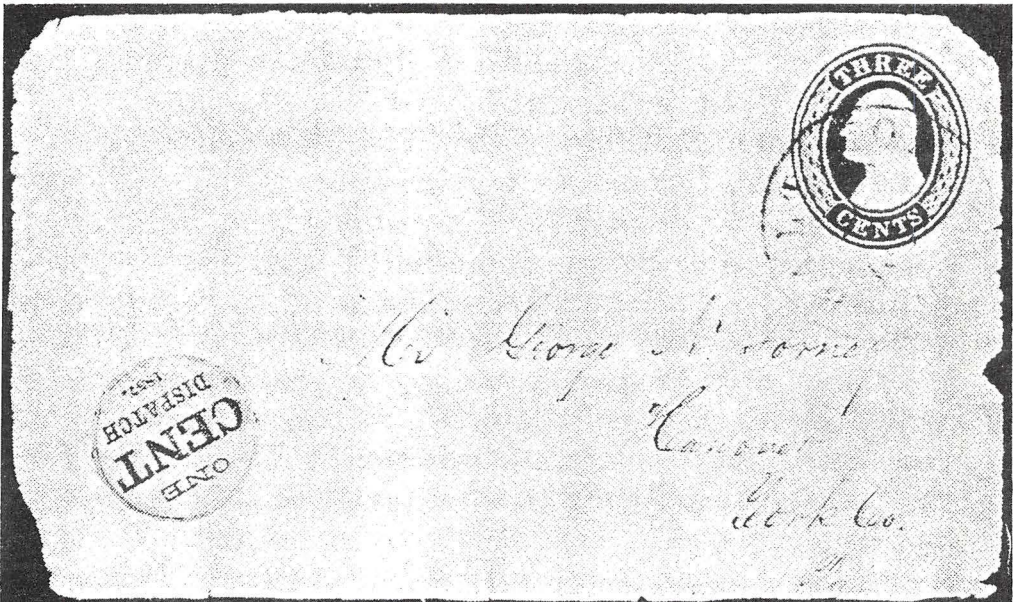 THREE
CENTS
Mr George
Hanover
York Co.
ONE
CENT
DISPATCH